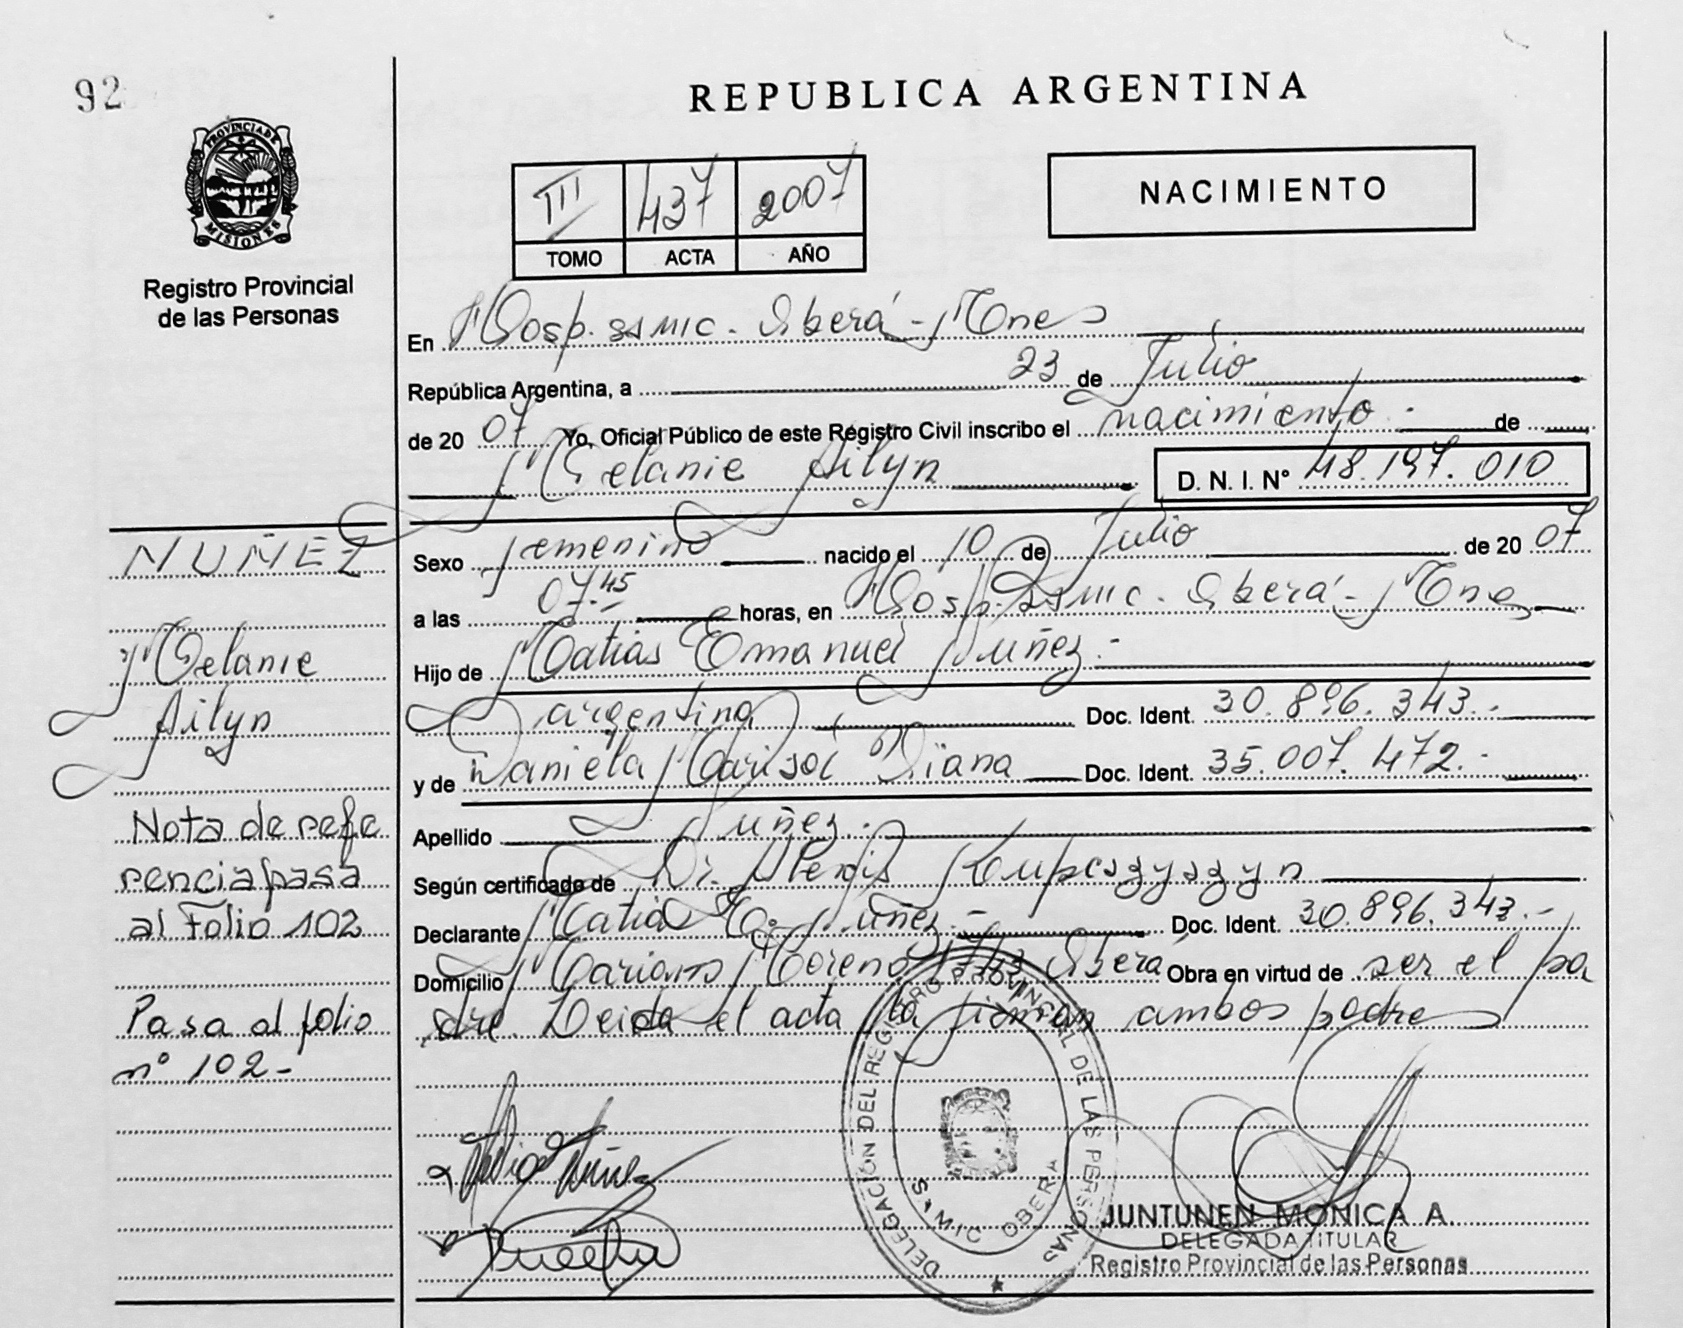 92
REPUBLICA ARGENTINA
PROVINCIA DE
MISIONES
Registro Provincial
de las Personas
III 437 2007
TOMO ACTA AÑO
NACIMIENTO
En Hosp. SSMIC. Oberá - Mnes
República Argentina, a 23 de Julio
de 20 07 Yo, Oficial Público de este Registro Civil inscribo el nacimiento - de
Melanie Ailyn D. N. I. N° 48.197.010
NUÑEZ
Melanie
Ailyn
Nota de refe
rencia pasa
al Folio 102
Pasa al folio
n° 102-
Sexo femenino nacido el 10 de Julio de 20 07
a las 07.45 horas, en Hosp. SSMIC. Oberá - Mnes
Hijo de Matias Emanuel Nuñez.-
argentina Doc. Ident. 30.896.343.-
y de Daniela Marisol Doc. Ident. 35.007.472.-
Apellido Nuñez.
Según certificado de Dr.
Declarante Matias E. Nuñez - Doc. Ident. 30.896.343.-
Domicilio Mariano Moreno Oberá Obra en virtud de ser el pa
dre. Leida el acta la firman ambos padres
DELEGACIÓN DEL REGISTRO PROVINCIAL DE LAS PERSONAS
MIC OBERA
JUNTUNEN MONICA A.
DELEGADA TITULAR
Registro Provincial de las Personas